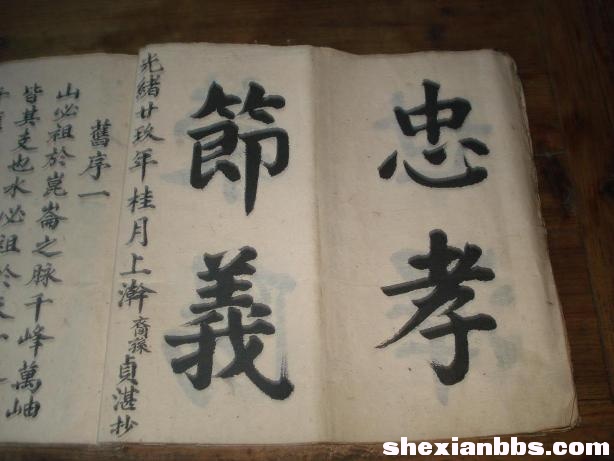 忠孝
節義
光緒廿玖年桂月上澣裔孫貞湛抄
舊序一
山必祖於崑崙之脉千峰萬岫
皆其支也水必祖於
shexianbbs.com